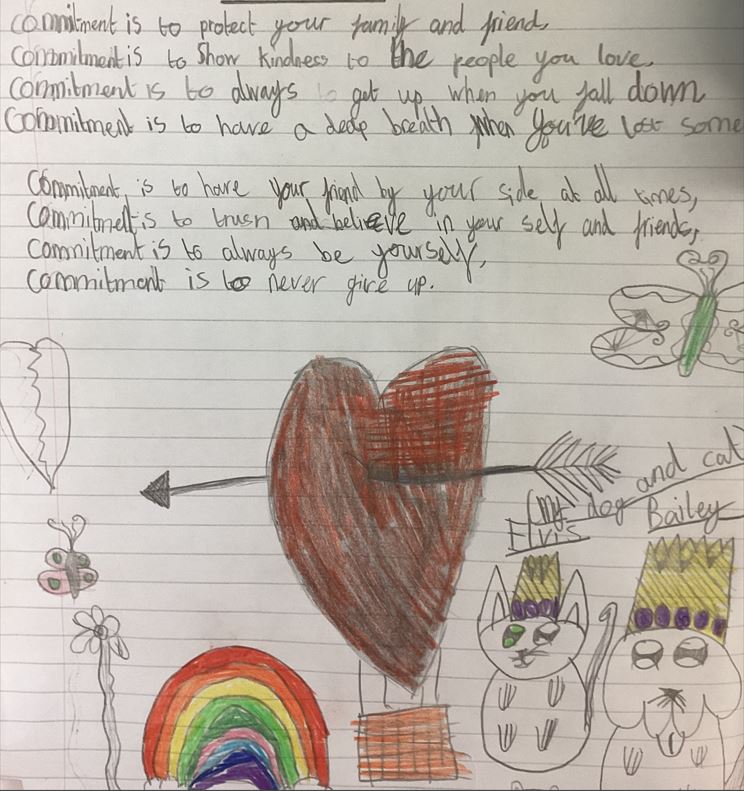 Commitment is to protect your family and friend,
Commitment is to Show kindness to the people you love,
Commitment is to always get up when you fall down
Commitment is to have a deap breath when You've lost some
Commitment is to have your friend by your side at all times,
Commitment is to trush and believe in your self and friends,
Commitment is to always be yourself,
Commitment is to never give up.
(my dog and cat)
Elvis Bailey